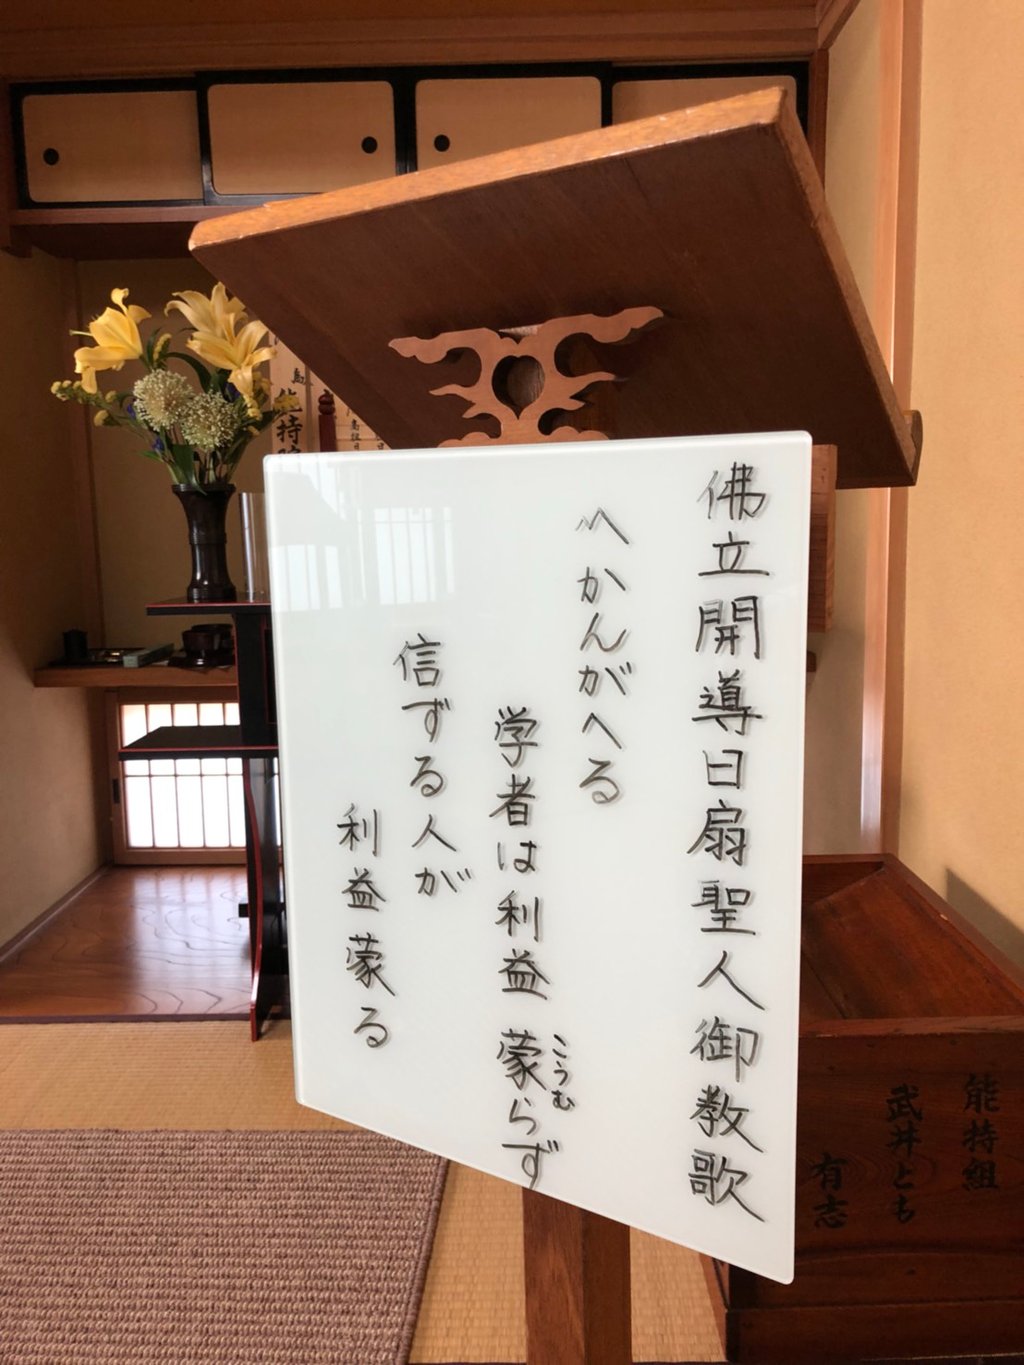 佛立開導日扇聖人御教歌
〽かんがへる
学者は利益蒙らず
こうむ
信ずる人が
利益蒙る
能持組
武井とも
有志
能持